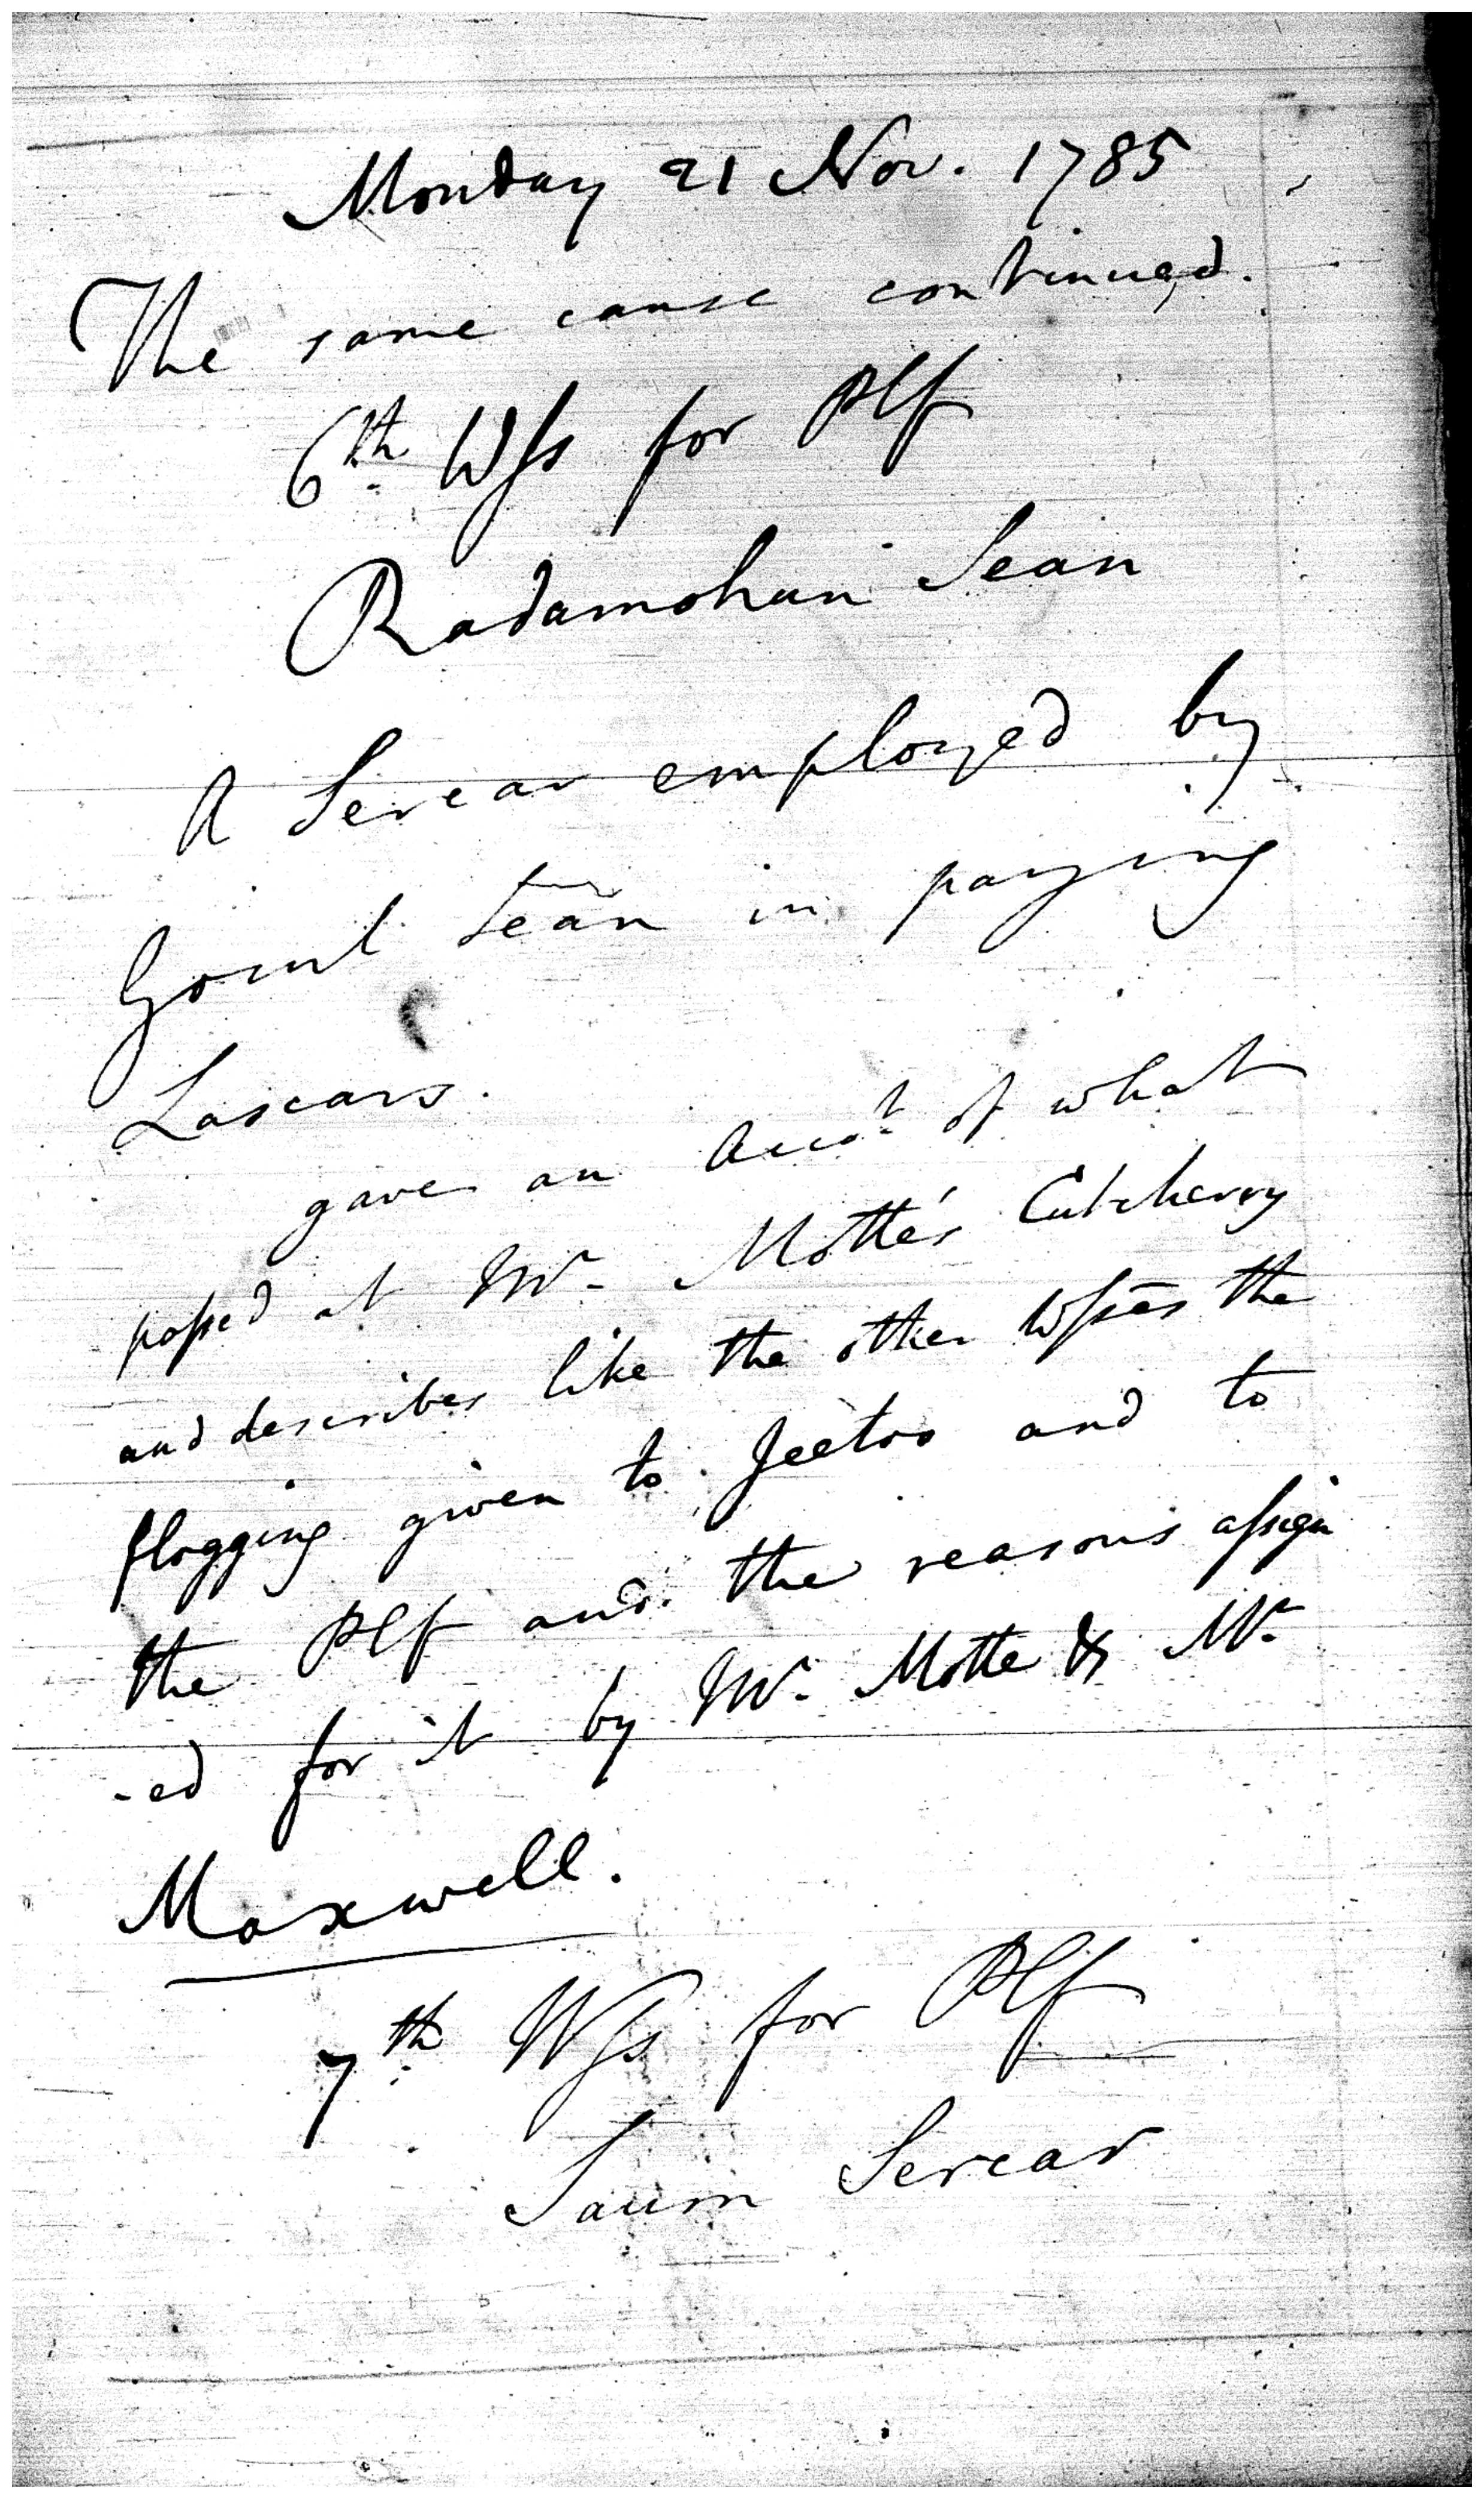 Monday 21 Nov. 1785
The same cause continued.
6th Wss for Plf
Radamohun Sean
A Sercar employed by
Gocul Sean in paying
Lascars.
gave an Accot of what
passed at Mr. Motte's Cutcherry
and describes like the other Wsses the
flogging given to Jeetoo and to
the Plf and the reasons assign
-ed for it by Mr. Motte & Mr.
Maxwell.
7th Wss for Plf
Saum Sercar